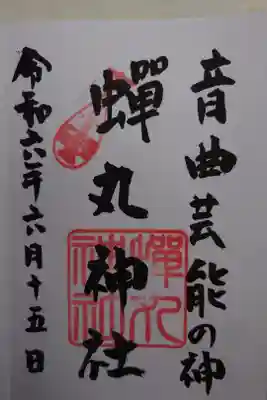 音曲芸能の神
蟬丸神社
令和六年六月十五日
蟬丸
神社